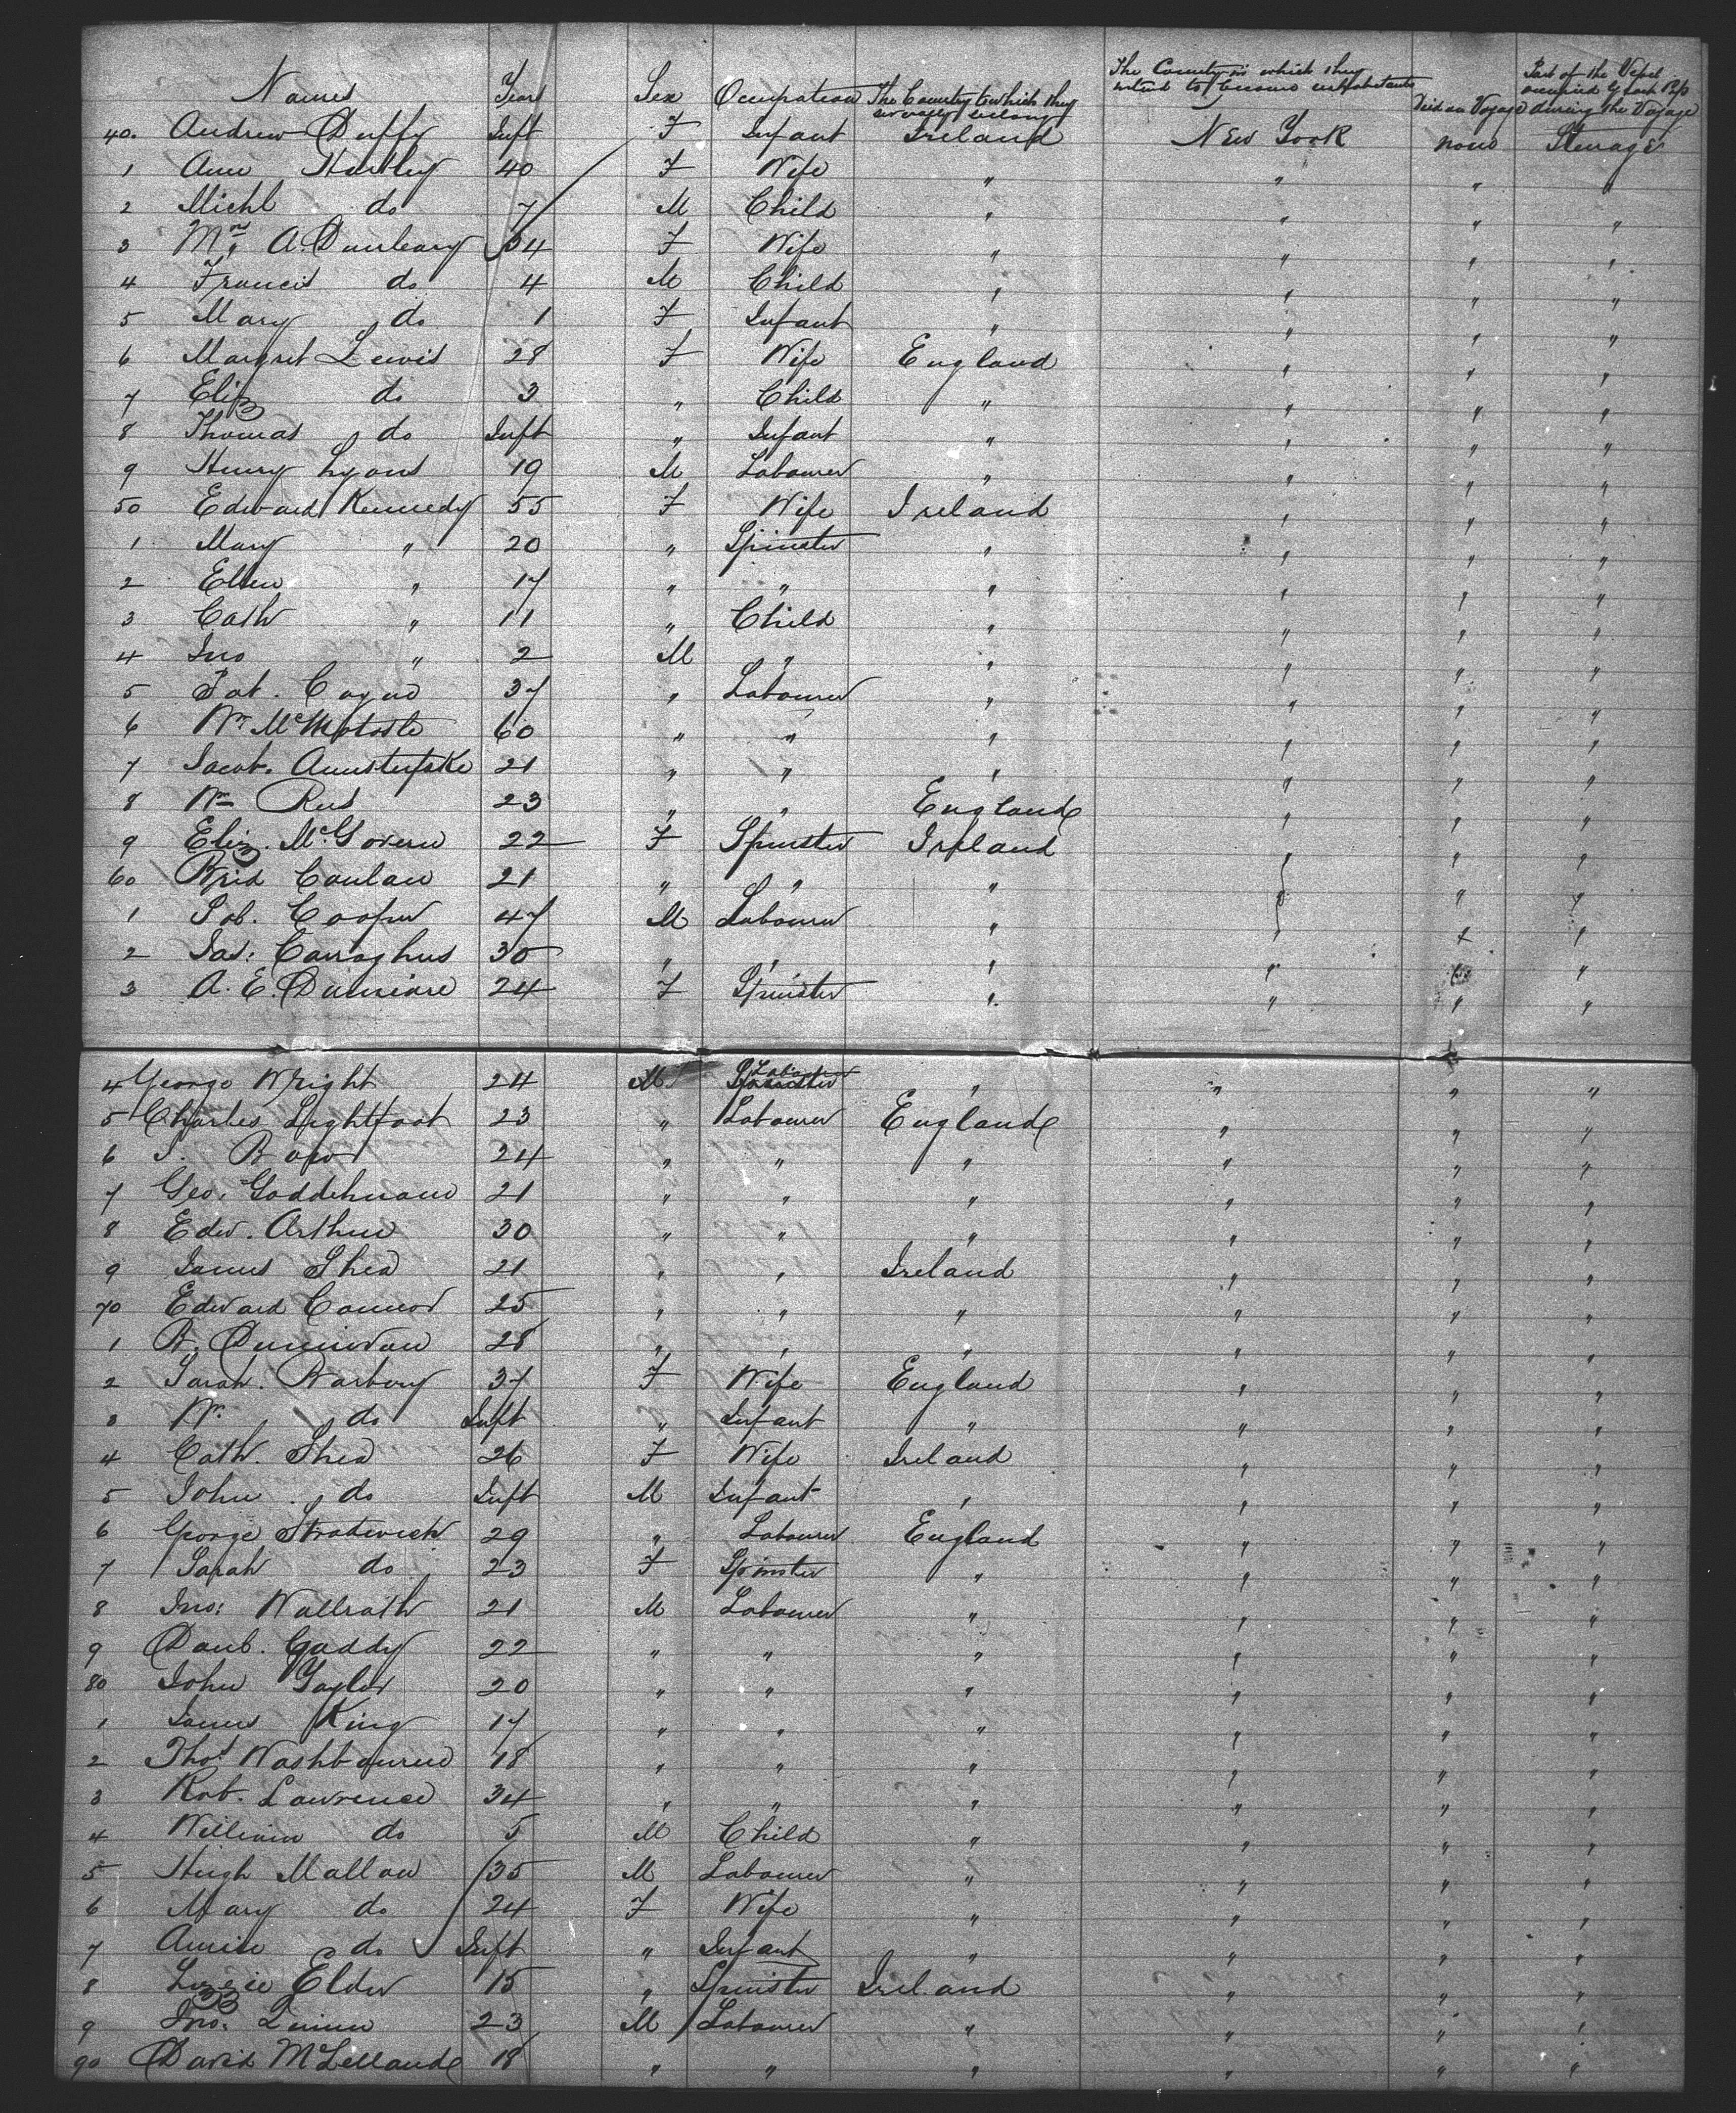 Names Years Sex Occupation The Country to which they severally belong The Country in which they intend to become inhabitants Died on Voyage Part of the Vessel occupied by each during the Voyage
40. Andrew Duffy Inft F Infant Ireland New York none Steerage
1 Ann Hartley 40 F Wife " " " "
2 Michl do 7 M Child " " " "
3 Mrs A. Dunleavy 34 F Wife " " " "
4 Francis do 4 M Child " " " "
5 Mary do 1 F Infant " " " "
6 Margret Lewis 28 F Wife England " " "
7 Eliz do 3 " Child " " " "
8 Thomas do Inft " Infant " " " "
9 Henry Lyons 19 M Labourer " " " "
50 Edward Kennedy 55 F Wife Ireland " " "
1 Mary " 20 " Spinster " " " "
2 Ellen " 17 " " " " " "
3 Cath " 11 " Child " " " "
4 Jno " 2 M " " " " "
5 Pat. 37 " Labourer " " " "
6 Wm 60 " " " " " "
7 Jacob. 21 " " " " " "
8 Wm Rees 23 " " England " " "
9 Eliz. McGovern 22 F Spinster Ireland " " "
60 Brid Conlan 21 " " " " " "
1 Rob. Cooper 47 M Labourer " " " "
2 Jas: Carraghus 30 " " " " " "
3 A. E. 24 F Spinster " " " "
4 George Wright 24 M Labourer " " " "
5 Charles Lightfoot 23 " Labourer England " " "
6 24 " " " " " "
7 Geo. 21 " " " " " "
8 Edw. Arthur 30 " " " " " "
9 James Shea 21 " " Ireland " " "
70 Edward Connor 25 " " " " " "
1 28 " " " " " "
2 Sarah. Barbory 37 F Wife England " " "
3 Wm do Inft " Infant " " " "
4 Cath. Shea 26 F Wife Ireland " " "
5 John do Inft M Infant " " " "
6 George Stratwick 29 " Labourer England " " "
7 Sarah do 23 F Spinster " " " "
8 Jno: Wallrath 21 M Labourer " " " "
9 Danl. Gaddy 22 " " " " " "
80 John Taylor 20 " " " " " "
1 James King 17 " " " " " "
2 Thos Washbourne 18 " " " " " "
3 Rob. Lawrence 34 " " " " " "
4 William do 5 M Child " " " "
5 Hugh Mallon 35 M Labourer " " " "
6 Mary do 24 F Wife " " " "
7 Annie do Inft " Infant " " " "
8 Lizzie Elder 15 " Spinster Ireland " " "
9 Jno. Quinn 23 M Labourer " " " "
90 David McLelland 18 " " " " " "